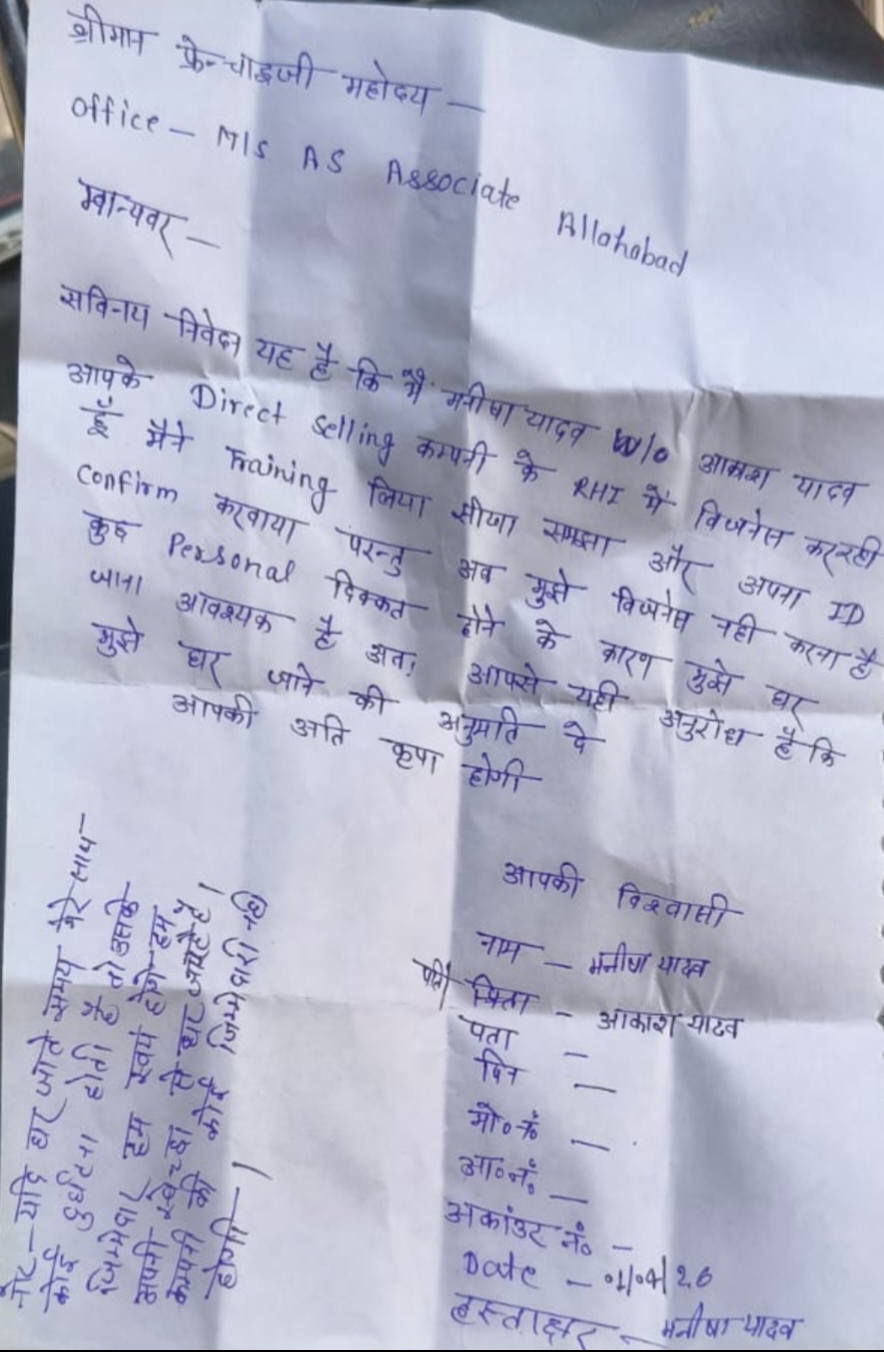 श्रीमान फ्रेन्चाइजी महोदय —
Office — M/S AS Associate Allahabad
मान्यवर —
सविनय निवेदन यह है कि मैं मनीषा यादव W/o आकाश यादव
आपके Direct Selling कम्पनी के RHI में विजनेस कर रही
हूँ मैने Training लिया सीखा समझा और अपना ID
Confirm करवाया परन्तु अब मुझे विजनेस नही करना है
कुछ Personal दिक्कत होने के कारण मुझे घर
जाना आवश्यक है अतः आपसे यही अनुरोध है कि
मुझे घर जाने की अनुमति दे
आपकी अति कृपा होगी
आपकी विश्वासी
नाम — मनीषा यादव
पति/पिता — आकाश यादव
पता —
पिन —
मो० नं० —
आ० नं० —
अकांउट नं० —
Date — 01/04/26
हस्ताक्षर — मनीषा यादव
नोट — यदि घर जाते समय मेरे साथ —
कोई दुर्घटना होती है तो उसके
जिम्मेदार हम स्वयं होंगे हम
अपनी स्वेच्छा से घर जा रहे है।
कम्पनी की कोई जिम्मेदारी नही
होगी —।